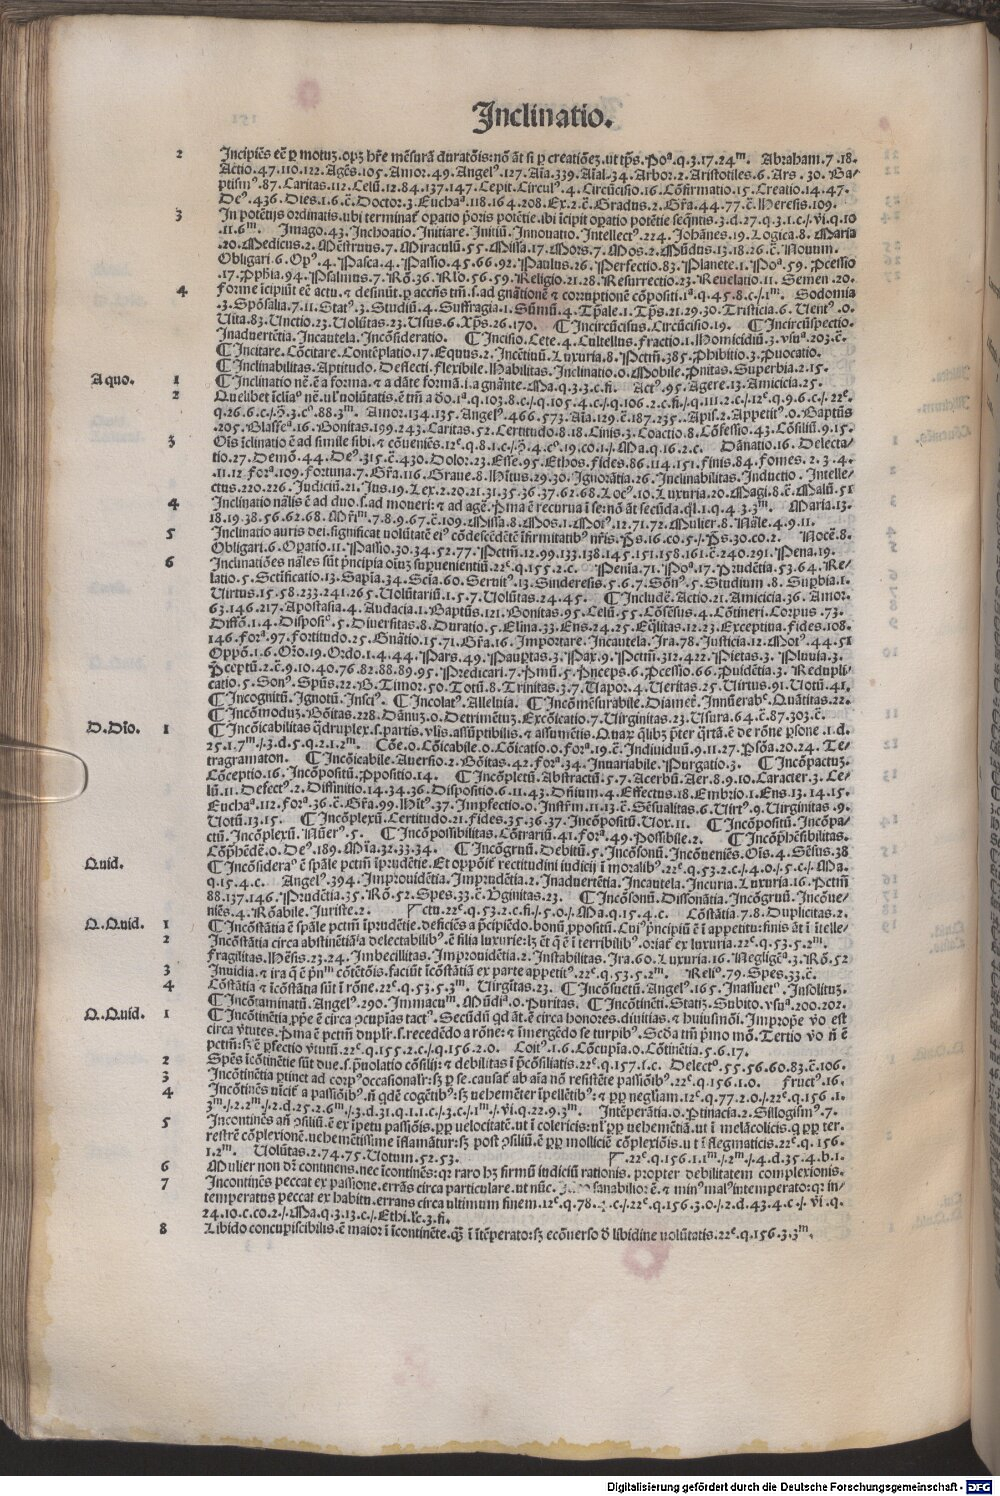 Inclinatio.
2 Incipiẽs eẽ ꝑ motuz. opz hr̃e mẽsurã duratõis: nõ ãt si ꝑ creatiõez. ut tp̃s. Poª.q.3.17.24ᵐ. Abraham.7.18.
Actio.47.110.122. Agẽs.105. Amor.49. Angelꝰ.127. Aĩa.339. Aĩal.34. Arbor.2. Aristotiles.6. Ars.30. Ba/
ptismꝰ.87. Caritas.112. Celũ.12.84.137.147. Cepit. Circulꝰ.4. Circũcisio.16. Cõfirmatio.15. Creatio.14.47.
Deꝰ.436. Dies.1.6.c̃. Doctor.3. Euchaª.118.164.208. Ex.2.c̃. Gradus.2. Gr̃a.44.77.c̃. Heresis.109.
3 In potẽtijs ordinatis. ubi terminat̃ oꝑatio p̃oris potẽtie. ibi ĩcipit oꝑatio potẽtie seq̃ntis.3.d.27.q.3.1.c./.vi.q.10
.11.6ᵐ. Imago.43. Inchoatio. Initiare. Initiũ. Innouatio. Intellectꝰ.224. Johãnes.19. Logica.8. Maria
.20. Medicus.2. Mẽstruus.7. Miraculũ.55. Missa.17. Mors.7. Mos.2. Mũdus.13.18.26.c̃. Nouum.
Obligari.6. Opꝰ.4. Pasca.4. Passio.45.66.92. Paulus.26. Perfectio.83. Planete.1. Poª.59. Ꝓcessio
.17. Ꝓphia.94. Psalmus.7. Rõ.36. Rl̃o.56.59. Religio.21.28. Resurrectio.23. Reuelatio.11. Semen.20.
4 Forme ĩcipiũt eẽ actu. ⁊ desinũt. ꝑ accñs tm̃.s. ad gñationẽ ⁊ corruptionẽ cõpositi.1ª.q.45.8.c./.1ᵐ. Sodomia
.3. Spõsalia.7.11. Statꝰ.3. Studiũ.4. Suffragia.1. Sũmũ.4. Tp̃ale.1. Tp̃s.21.29.30. Tristicia.6. Uentꝰ.0.
Uita.83. Unctio.23. Uolũtas.23. Usus.6. Xp̃s.26.170. ¶ Incircũcisus. Circũcisio.19. ¶ Incircũspectio.
Inaduertẽtia. Incautela. Incõsideratio. ¶ Incisio. Cete.4. Cultellus. Fractio.1. Homicidiũ.3. vsuª.203.c̃.
¶ Incitare. Cõcitare. Contẽplatio.17. Equus.2. Incẽtiuũ. Luxuria.8. Pctm̃.385. Ꝓhibitio.3. Ꝓuocatio.
¶ Inclinabilitas. Aptitudo. Deflecti. Flexibile. Habilitas. Inclinatio.0. Mobile. Pnitas. Superbia.2.15.
A quo. 1 ¶ Inclinatio nẽ. ẽ a forma. ⁊ a dãte formã.i.a gnãnte. Ma.q.3.3.c.fi. Actꝰ.95. Agere.13. Amicicia.25.
2 Quelibet ĩcliaꝰ nẽ. ulꝰ uolũtatis. ẽ tm̃ a d̃o.1ª.q.103.8.c./.q.105.4.c./.q.106.2.c.fi./.q.111.2.c./.12ᵉ.q.9.6.c./.22ᵉ.
q.26.6.c./.p̃.3.cꝰ.88.3ᵐ. Amor.134.135. Angelꝰ.466.573. Aĩa.129.c̃.187.235. Apis.2. Appetitꝰ.0. Baptũs
.205. Blasfeª.16. Bonitas.199.243. Caritas.52. Certitudo.8.18. Cinis.3. Coactio.8. Cõfessio.43. Cõsiliũ.9.15.
3 Oĩs ĩclinatio ẽ ad simile sibi. ⁊ cõueniẽs.12ᵉ.q.8.1.c./.p̃.4.cꝰ.19.co.1./.Ma.q.16.2.c. Dãnatio.16. Delecta/
tio.27. Demõ.44. Deꝰ.315.c̃.430. Dolor.23. Esse.95. Ethos. Fides.86.114.151. Finis.84. Fomes.2.3.4.
.11.12. Forª.109. Fortuna.7. Gr̃a.116. Graue.8. Hr̃itus.29.30. Ignorãtia.26. Inclinabilitas. Inductio. Intelle/
ctus.220.226. Judiciũ.21. Jus.19. Lex.2.20.21.31.35.36.37.62.68. Locꝰ.10. Luxuria.20. Magi.8.c̃. Malũ.51
4 Inclinatio nãlis ẽ ad duo.s. ad moueri: ⁊ ad agẽ. Pma ẽ recurua ĩ se: nõ ãt secũda. ql̃.1.q.4.3.3ᵐ. Maria.13.
18.19.38.56.62.68. Mr̃ĩᵐ.7.8.9.67.c̃.109. Missa.8. Mos.1. Motꝰ.12.71.72. Mulier.8. Nãle.4.9.11.
5 Inclinatio auris dei. significat uolũtatẽ eiꝰ cõdescẽdẽtẽ ĩfirmitatibꝰ nr̃is. Ps.16.co.5./.Ps.30.co.2. Nocẽ.8.
Obligari.6. Oꝑatio.11. Passio.30.34.52.77. Pctm̃.12.99.133.138.145.151.158.161.c̃.240.291. Pena.19.
6 Inclinatiões nãles sũt p̃ncipia oĩuz supuenientiũ.22ᵉ.q.155.2.c. Penĩa.71. Poª.17. Prudẽtia.53.64. Re/
latio.5. Scĩificatio.13. Sapĩa.34. Scĩa.60. Seruitꝰ.13. Sinderesis.5.6.7. Sõnꝰ.5. Studium.8. Supbia.1.
Uirtus.15.58.233.241.265. Uolũtariũ.1.5.7. Uolũtas.24.45. ¶ Includẽ. Actio.21. Amicicia.36. Amor.
63.146.217. Apostasia.4. Audacia.1. Baptũs.121. Bonitas.95. Celũ.55. Cõsẽsus.4. Cõtineri. Corpus.73.
Diffõ.1.4. Dispositꝰ.5. Diuersitas.8. Duratio.5. Elina.33. Ens.24.25. Eq̃litas.12.23. Exceptiua. Fides.108.
146. Forª.97. Fortitudo.25. Gñatio.15.71. Gr̃a.16. Importare. Incautela. Ira.78. Justicia.12. Motꝰ.44.51
Oppõ.1.6. Or̃o.19. Ordo.1.4.44. Pars.49. Pauꝑtas.3. Pax.9. Pctm̃.312.422. Pietas.3. Pluuia.3.
P̃ceptũ.2.c̃.9.10.40.76.82.88.89.95. Predicari.7. Pmũ.5. Pnceps.6. Ꝓcessio.66. Puidẽtia.3. Redupli/
catio.5. Sonꝰ. Spũs.22. B. Timor.50. Totũ.8. Trinitas.3.7. Uapor.4. Ueritas.25. Uirtus.91. Uotũ.41.
¶ Incognitũ. Ignotũ. Insciꝰ. ¶ Incolatꝰ. Alleluia. ¶ Incõmẽsurabile. Diamet̃. Innũerabᵉ. Quãtitas.22.
¶ Incõmoduz. Bõitas.228. Dãnuz.0. Detrimẽtuz. Excõicatio.7. Uirginitas.23. Usura.64.c̃.87.303.c̃.
D. Dĩo. 1 ¶ Incõicabilitas q̃druplex.s. partis. vlis. assũptibilis. ⁊ assumẽtis. Quaꝝ q̃libꝫ p̃ter q̃rtã. ẽ de rõne ꝑsone.1.d.
25.1.7ᵐ./.3.d.5.q.2.1.2ᵐ. Cõe.0. Cõicabile.0. Cõicatio.0. Forª.19.c̃. Indiuiduũ.9.11.27. Psõa.20.24. Te/
tragramaton. ¶ Incõicabile. Auersio.2. Bõitas.42. Forª.34. Inuariabile. Purgatio.3. ¶ Incõpactuz.
Cõceptio.16. Incõpositũ. Ꝓpositio.14. ¶ Incõpletũ. Abstractũ.5.7. Acerbũ. Aer.8.9.10. Caracter.3. Ce/
lũ.11. Defectꝰ.2. Diffinitio.14.34.36. Dispositio.6.11.43. Dñium.4. Effectus.18. Embrio.1. Ens.13.14.15.
Euchaª.112. Forª.36.c̃. Gr̃a.99. Hitꝰ.37. Impfectio.0. Instr̃m.11.13.c̃. Sẽsualitas.6. Uirtꝰ.9. Uirginitas.9.
Uotũ.13.15. ¶ Incõplexũ. Certitudo.21. Fides.35.36.37. Incõpositũ. Uox.11. ¶ Incõpositũ. Incõpa/
ctũ. Incõplexũ. Nũerꝰ.5. ¶ Incõpossibilitas. Cõtrariũ.41. Forª.49. Possibile.2. ¶ Incõp̃hẽsibilitas.
Cõp̃hẽdẽ.0. Deꝰ.189. Mĩa.32.33.34. ¶ Incõgruũ. Debitũ.5. Incõsonũ. Incõueniẽs. Oĩs.4. Sẽsus.38
Quid. ¶ Incõsideraꝰ ẽ sp̃ale pctm̃ ĩprudẽtie. Et oppõit̃ rectitudini iudicij ĩ moralibꝰ.22ᵉ.q.53.2.c./.4.0./.5.c./.Ma.
q.15.4.c. Angelꝰ.394. Improuidẽtia. Imprudẽtia.2. Inaduertẽtia. Incautela. Incuria. Luxuria.16. Pctm̃
88.137.146. Prudẽtia.35. Rõ.52. Spes.33.c̃. Uginitas.23. ¶ Incõsonũ. Dissonãtia. Incõgruũ. Incõue/
niẽs.4. Rõabile. Juriste.2. ctu.22ᵉ.q.53.2.c.fi./.5.0./.Ma.q.15.4.c. Cõstãtia.7.8. Duplicitas.2.
Q. Quid. 1 ¶ Incõstãtia ẽ sp̃ale pctm̃ ĩprudẽtie. deficiẽs a p̃cipiẽdo. bonũ ꝓpositũ. Cuiꝰ p̃ncipiũ ẽ ĩ appetitu: finis ãt ĩ ĩtelle/
2 Incõstãtia circa abstinẽtiã a delectabilibꝰ. ẽ filia luxurie: lꝫ ẽt q̃ ẽ ĩ terribilibꝰ. oriat̃ ex luxuria.22ᵉ.q.53.5.2ᵐ.
Fragilitas. Hr̃esis.23.24. Imbecillitas. Improuidẽtia.2. Instabilitas. Ira.60. Luxuria.16. Negligẽª.3. Rõ.52
3 Inuidia ⁊ ira q̃ ẽ p̃nᵐ cõtẽtõis. faciũt ĩcõstãtiã ex parte appetitꝰ.22ᵉ.q.53.5.2ᵐ. Reliꝰ.79. Spes.33.c̃.
4 Cõstãtia ⁊ ĩcõstãtia sũt ĩ rõne.22ᵉ.q.53.5.3ᵐ. Uirgĩtas.23. ¶ Incõsuetũ. Angelꝰ.165. Inassuetꝰ. Insolituz.
¶ Incõtaminatũ. Angelꝰ.290. Immacuᵐ. Mũdiª.0. Puritas. ¶ Incõtinẽti. Statiz. Subito. vsuª.200.202.
Q. Quid. 1 ¶ Incõtinẽtia ꝓp̃e ẽ circa ꝯcupĩas tactꝰ. Secũdũ qd ãt. ẽ circa honores. diuitias. ⁊ huiusmõi. Impropẽ ṽo est
circa ṽtutes. Pma ẽ pctm̃ duplr̃.s. recedẽdo a rõne: ⁊ ĩmergẽdo se turpibꝰ. Scd̃a tm̃ p̃mo mõ. Tertio ṽo ñ ẽ
pctm̃: sꝫ ẽ ꝑfectio ṽtutũ.22ᵉ.q.155.2.c./.q.156.2.0. Coitꝰ.1.6. Cõcupĩa.0. Cõtinẽtia.5.6.17.
2 Spẽs ĩcõtinẽtie sũt due.s. p̃uolatio cõsilij: ⁊ debilitas ĩ p̃cõsiliatis.22ᵉ.q.157.1.c. Delectꝰ.55.56.60.83.c̃.106.
3 Incõtinẽtia ꝑtinet ad corpꝰ occasionalr̃: sꝫ ꝑ se. causat̃ ab aĩa nõ resistẽte passiõibꝰ.22ᵉ.q.156.1.0. Fructꝰ.16.
4 Incõtinẽs uĩcit̃ a passiõibꝰ. ñ qd̃ẽ cogẽtibꝰ: sꝫ uehemẽter ĩpellẽtibꝰ: ⁊ ꝑꝑ negliam.12ᵉ.q.77.2.0./.22ᵉ.q.156.1.
3ᵐ./.2.2ᵐ./.2.d.25.2.6ᵐ./.3.d.31.q.1.1.c./.3.c./.1ᵐ./.vi.q.22.9.3ᵐ. Intẽperãtia.0. Ptinacia.2. Sillogismꝰ.7.
5 Incontinẽs añ ꝯsiliũ. ẽ ex ĩpetu passiõis. ꝑꝑ uelocitatẽ. ut ĩ colericis: ulꝰ ꝑꝑ uehemẽtiã. ut ĩ melãcolicis. q ꝑꝑ ter.
restrẽ cõplexionẽ. uehemẽtissime ĩflamãtur: sꝫ post ꝯsiliũ. ẽ ꝑꝑ molliciẽ cõplexiõis. ut ĩ flegmaticis.22ᵉ.q.156.
1.2ᵐ. Uolũtas.2.74.75. Uotum.52.53. .22ᵉ.q.156.1.1ᵐ./.2ᵐ./.4.d.35.4.b.1.
6 Mulier non dr̃ continens. nec ĩcontinẽs: qꝛ raro hꝫ firmũ indiciũ rationis. propter debilitatem complexionis.
7 Incontinẽs peccat ex passione. errãs circa particulare. ut nũc. sanabilior ẽ. ⁊ minꝰ malꝰ intemperato: qꝛ in/
temperatus peccat ex habitu. errans circa ultimum finem.12ᵉ.q.78. c./.22ᵉ.q.156.3.0./.2.d.43.4.c./.vi.q.
24.10.c.co.2./.Ma.q.3.13.c./.Ethi.lc̃.3.fi.
8 Libido concupiscibilis. ẽ maior ĩ ĩcontinẽte. qz̃ ĩ ĩtẽperato: sꝫ ecõuerso d̃ libidine uolũtatis.22ᵉ.q.156.3.3ᵐ.
Digitalisierung gefördert durch die Deutsche Forschungsgemeinschaft - DFG